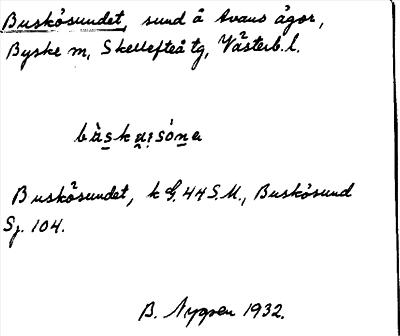 Buskösundet, sund å Avans ägor,
Byske m, Skellefteå tg, Västerb. l.
bàskaısóna
Buskösundet, k G. 44 S.M., Buskösund
Sj. 104.
B. Nygren 1932.